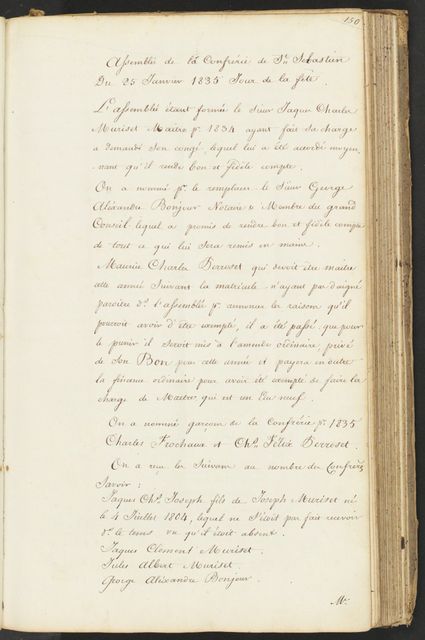 150
Assemblée de la Confrérie de St. Sebastien
Du 25 Janvier 1835 Jour de la fete.
L'assemblée étant formée le Sieur Jaques Charles
Muriset Maitre pr. 1834 ayant fait sa charge
a demandé son congé, lequel lui a été accordé moyen-
nant qu'il rende bon et fidèle compte.
On a nommé pr. le remplacer le Sieur George
Alexandre Bonjour Notaire & Membre du grand
Conseil lequel a promis de rendre bon et fidèle compte
de tout ce qui lui sera remis en mains.
Maurice Charles Perroset qui devoit être maitre
cette année suivant la matricule n'ayant pas daigné
paroitre ds. l'assemblée pr. annoncer la raison qu'il
pourroit avoir d'être exempté, il a été passé que pour
le punir il seroit mis à l'amende ordinaire, privé
de son Bon pour cette année et payera en outre
la finance ordinaire pour avoir été exempté de faire la
charge de Maitre qui est un Ecu neuf.
On a nommé garçons de la Confrérie pr. 1835
Charles Frochaux et Chs. Félix Perroset.
On a reçu les Suivans au nombre des Confrères
Savoir :
Jaques Chs. Joseph fils de Joseph Muriset né
le 4 Juillet 1804, lequel ne s'étoit pas fait recevoir
ds. le tems vu qu'il étoit absent.
Jaques Clement Muriset.
Jules Albert Muriset.
George Alexandre Bonjour.
Mr.